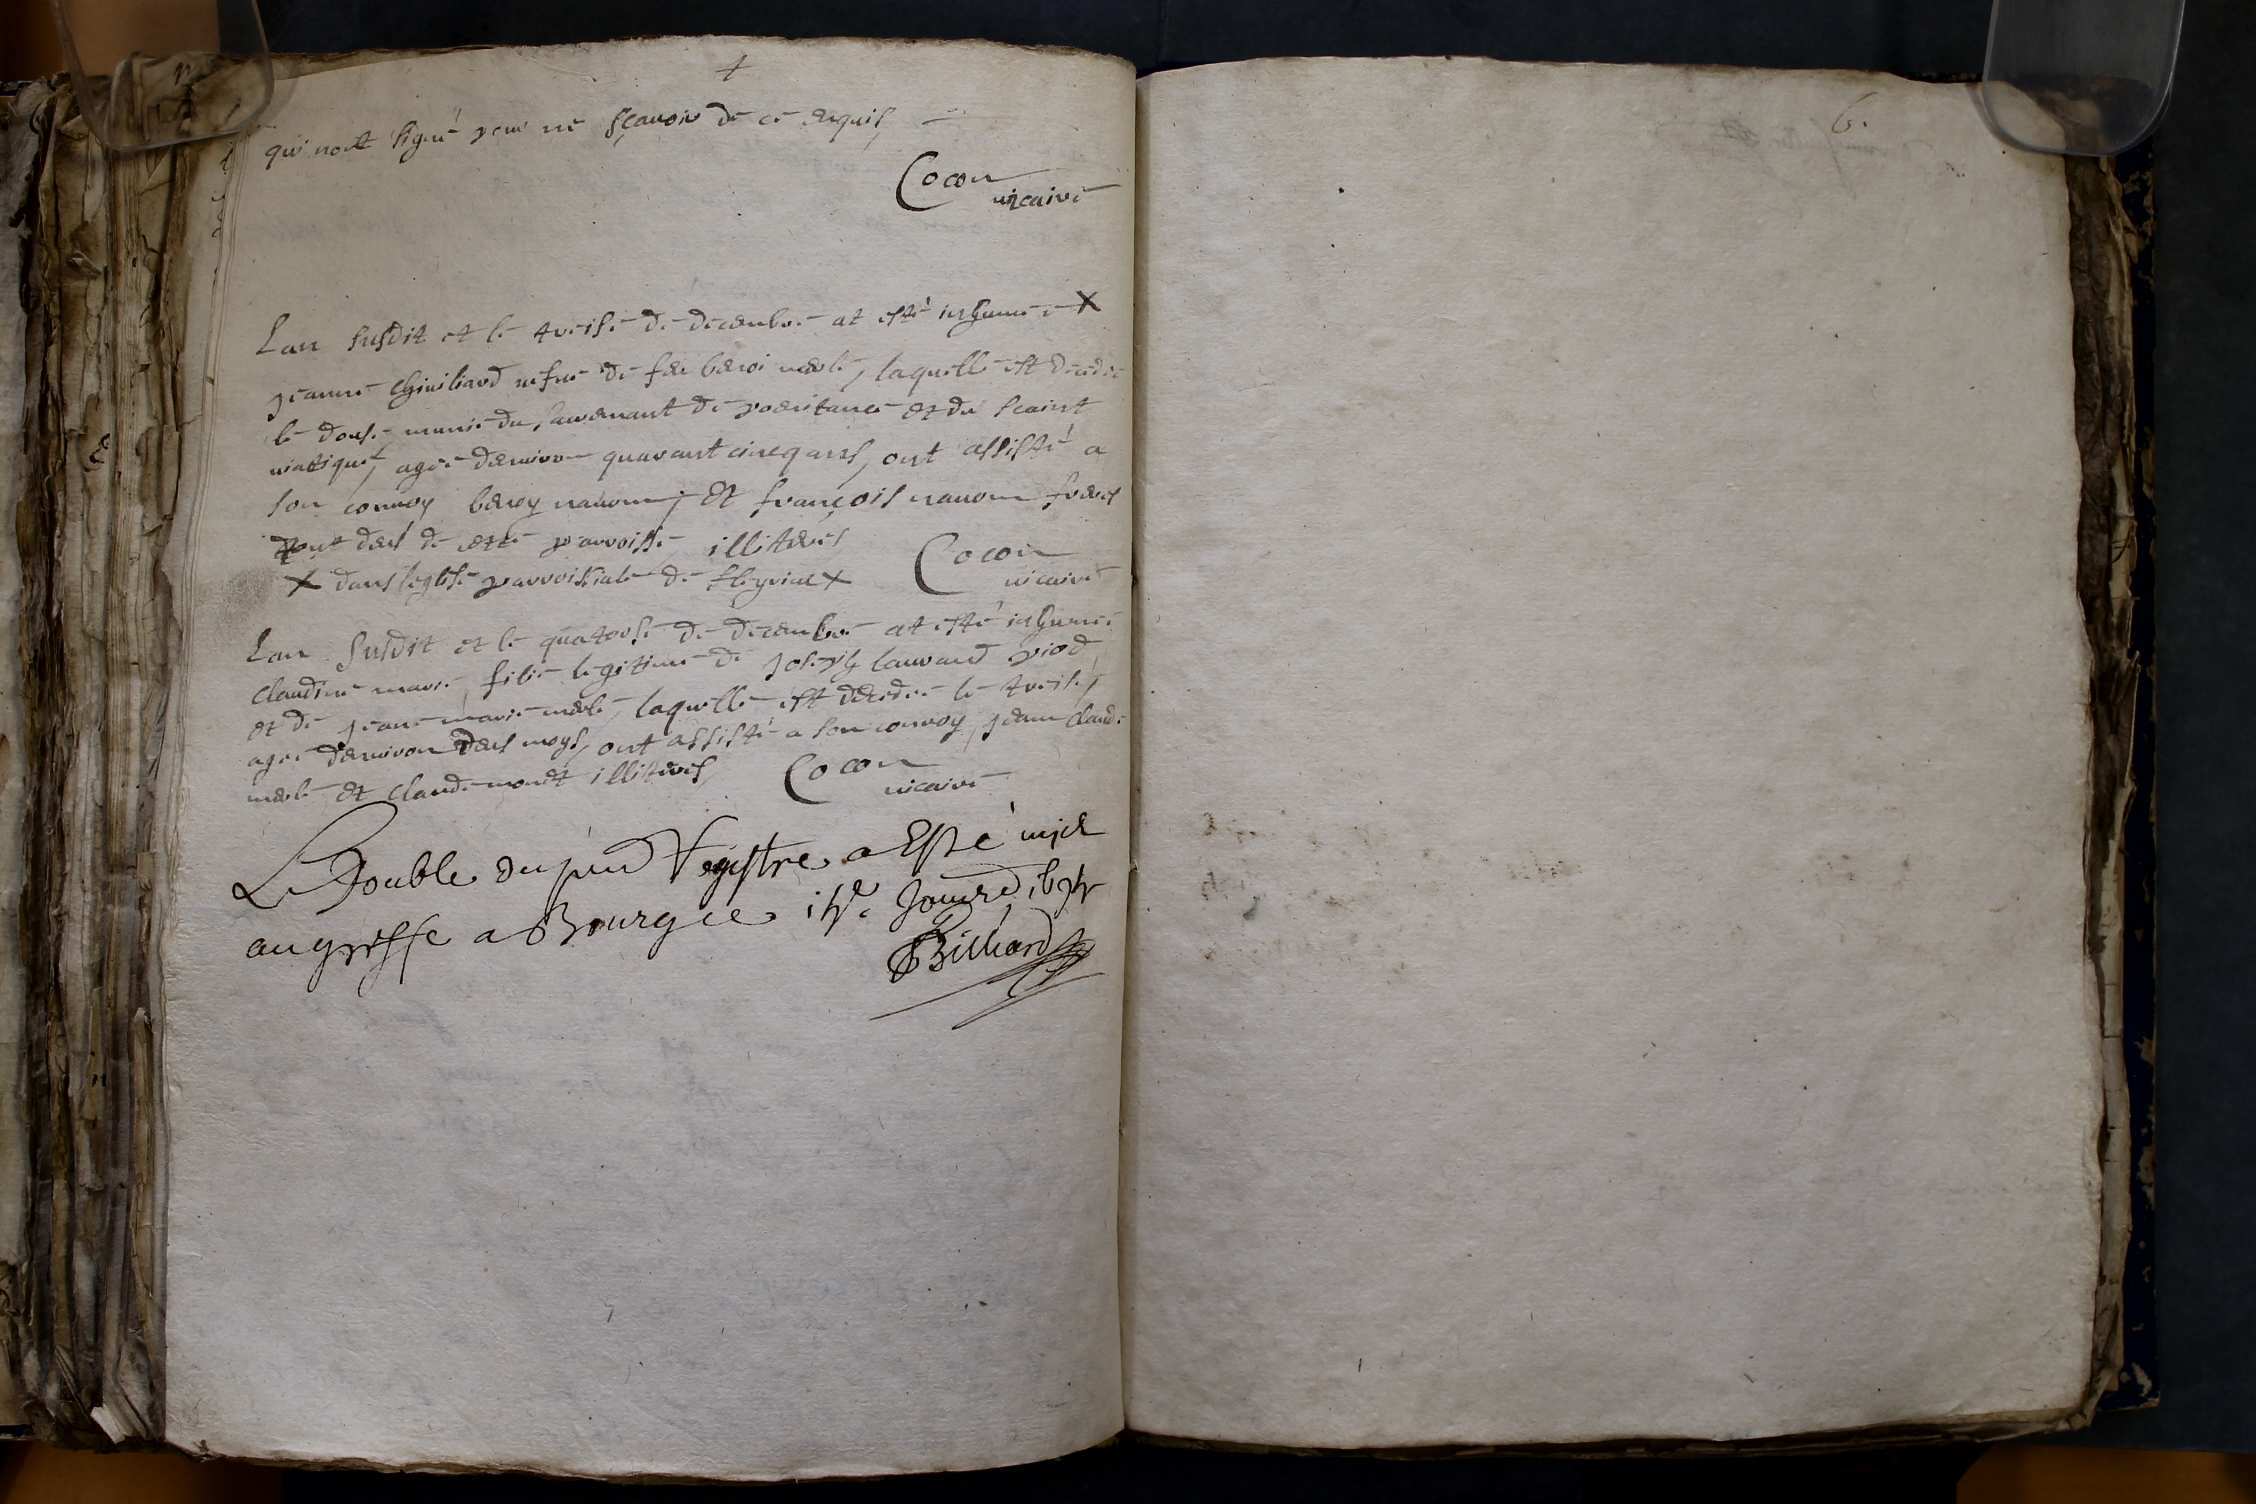 qui nont signé pour ne sçavoir de ce enquis
Cocon
vicaire
Lan susdit et le treise de decembre at esté inhumée X
jeanne chiviliard vefue de feu benoi merle, laquelle est decedee
le douse, munie du sacremant de poenitance et du scainct
viatique, agée denviron quarant cinq ans, ont assisté a
son convoy benoy navoun, et françois navoun freres
tout deus de cette parroisse illiteres
Cocon
vicaire
X dans leglise parroissiale de fleyriat X
Lan susdit et le quatorse de decembre at esté inhumée
claudine marie, fillie legitime de joseph laurand piod
et de jeane marie merle, laquelle est decedee le treise,
agee denviron deus moys, ont assisté a son convoy, jean claude
merle et claude monet illiteres,
Cocon
vicaire
Le Double du pnt Registre a Esté mis
au greffe a Bourg ce
Billiard
6.